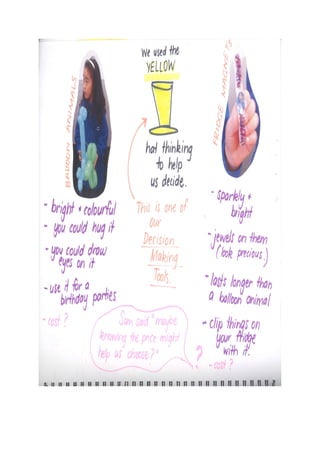 BALLOON ANIMALS
- bright & colourful
- you could hug it
- you could draw
eyes on it
- use it for a
birthday parties
- cost?
We used the
YELLOW
hat thinking
to help
us decide.
This is one of
our
Decision
Making
Tools.
Sam said "maybe
knowing the price might
help us choose?"
?
FRIDGE MAGNETS
- sparkly &
bright
- jewels on them
(look precious)
- lasts longer than
a balloon animal
- clip things on
your fridge
with it.
- cost?